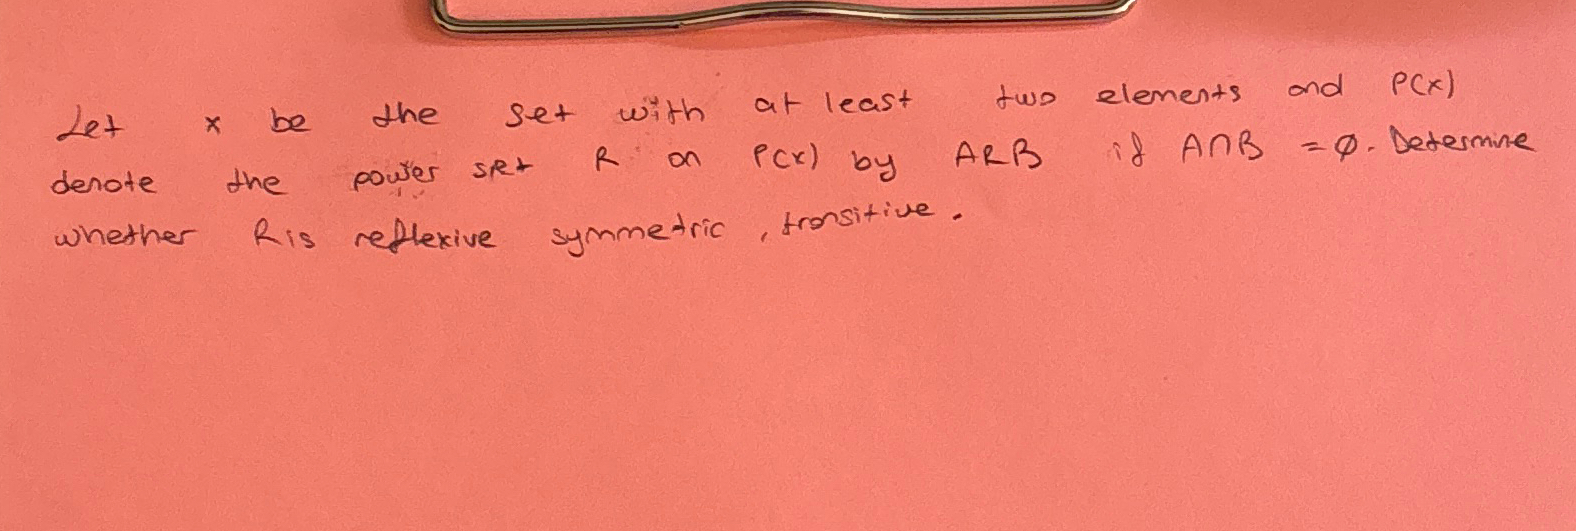 Let x be the set with at least two elements and P(x)
denote the power set R on P(x) by ARB if A∩B = ∅. Determine
whether R is reflexive symmetric, transitive.